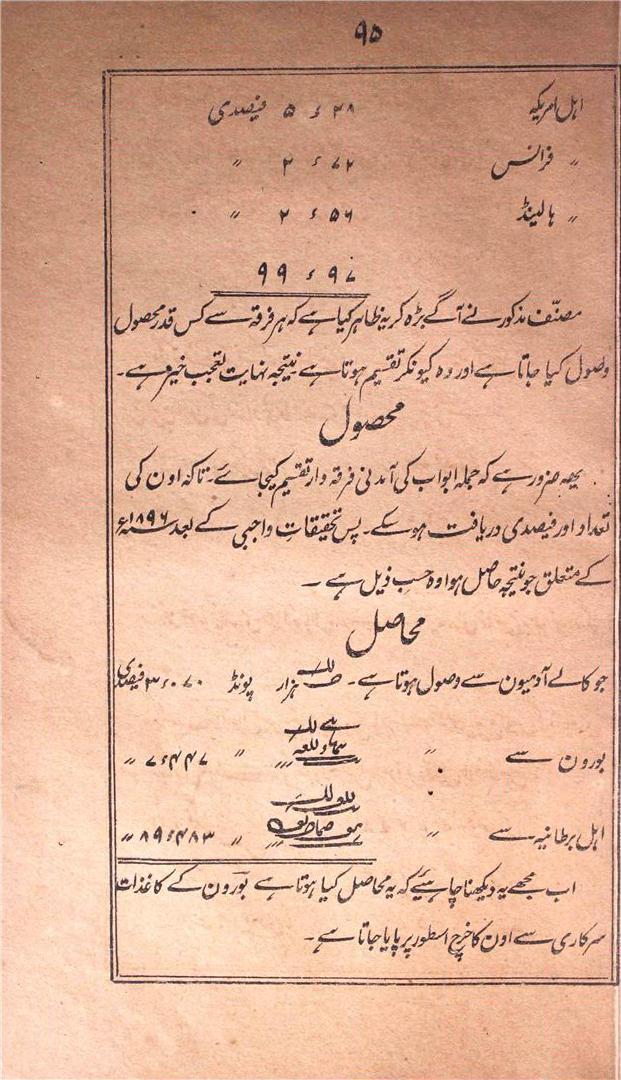 ۹۵
اہل امریکہ ۲۸ ء ۵ فیصدی
〃 فرانس ۷۲ ء ۲ 〃
〃 ہالینڈ ۵۶ ء ۲ 〃
۹۷ ء ۹۹
مصنّف مذکور نے آگے بڑہ کر یہ ظاہر کیا ہے کہ ہر فرقہ سے کس قدر محصول
وصول کیا جاتا ہے اور وہ کیونکر تقسیم ہوتا ہے نتیجہ نہایت تعجب خیز ہے۔
محصول
یہہ ضرور ہے کہ جملہ ابواب کی آمدنی فرقہ وار تقسیم کیجائے۔ تاکہ اون کی
تعداد اور فیصدی دریافت ہو سکے۔ پس تحقیقاتِ واجبی کے بعد سنہ ۱۸۹۶ء
کے متعلق جو نتیجہ حاصل ہوا وہ حسبِ ذیل ہے ۔
محاصل
جو کالے آدمیون سے وصول ہوتا ہے۔ ہزار پونڈ ۰۷۰ء۳ فیصدی
بورون سے 〃 〃 ۴۴۷ء۷ 〃
اہل برطانیہ سے 〃 〃 ۴۸۳ء۸۹ 〃
اب مجھے یہ دیکھنا چاہیئے کہ یہ محاصل کیا ہوتا ہے بورون کے کاغذات
سرکاری سے اون کا خرچ اسطور پر پایا جاتا ہے۔